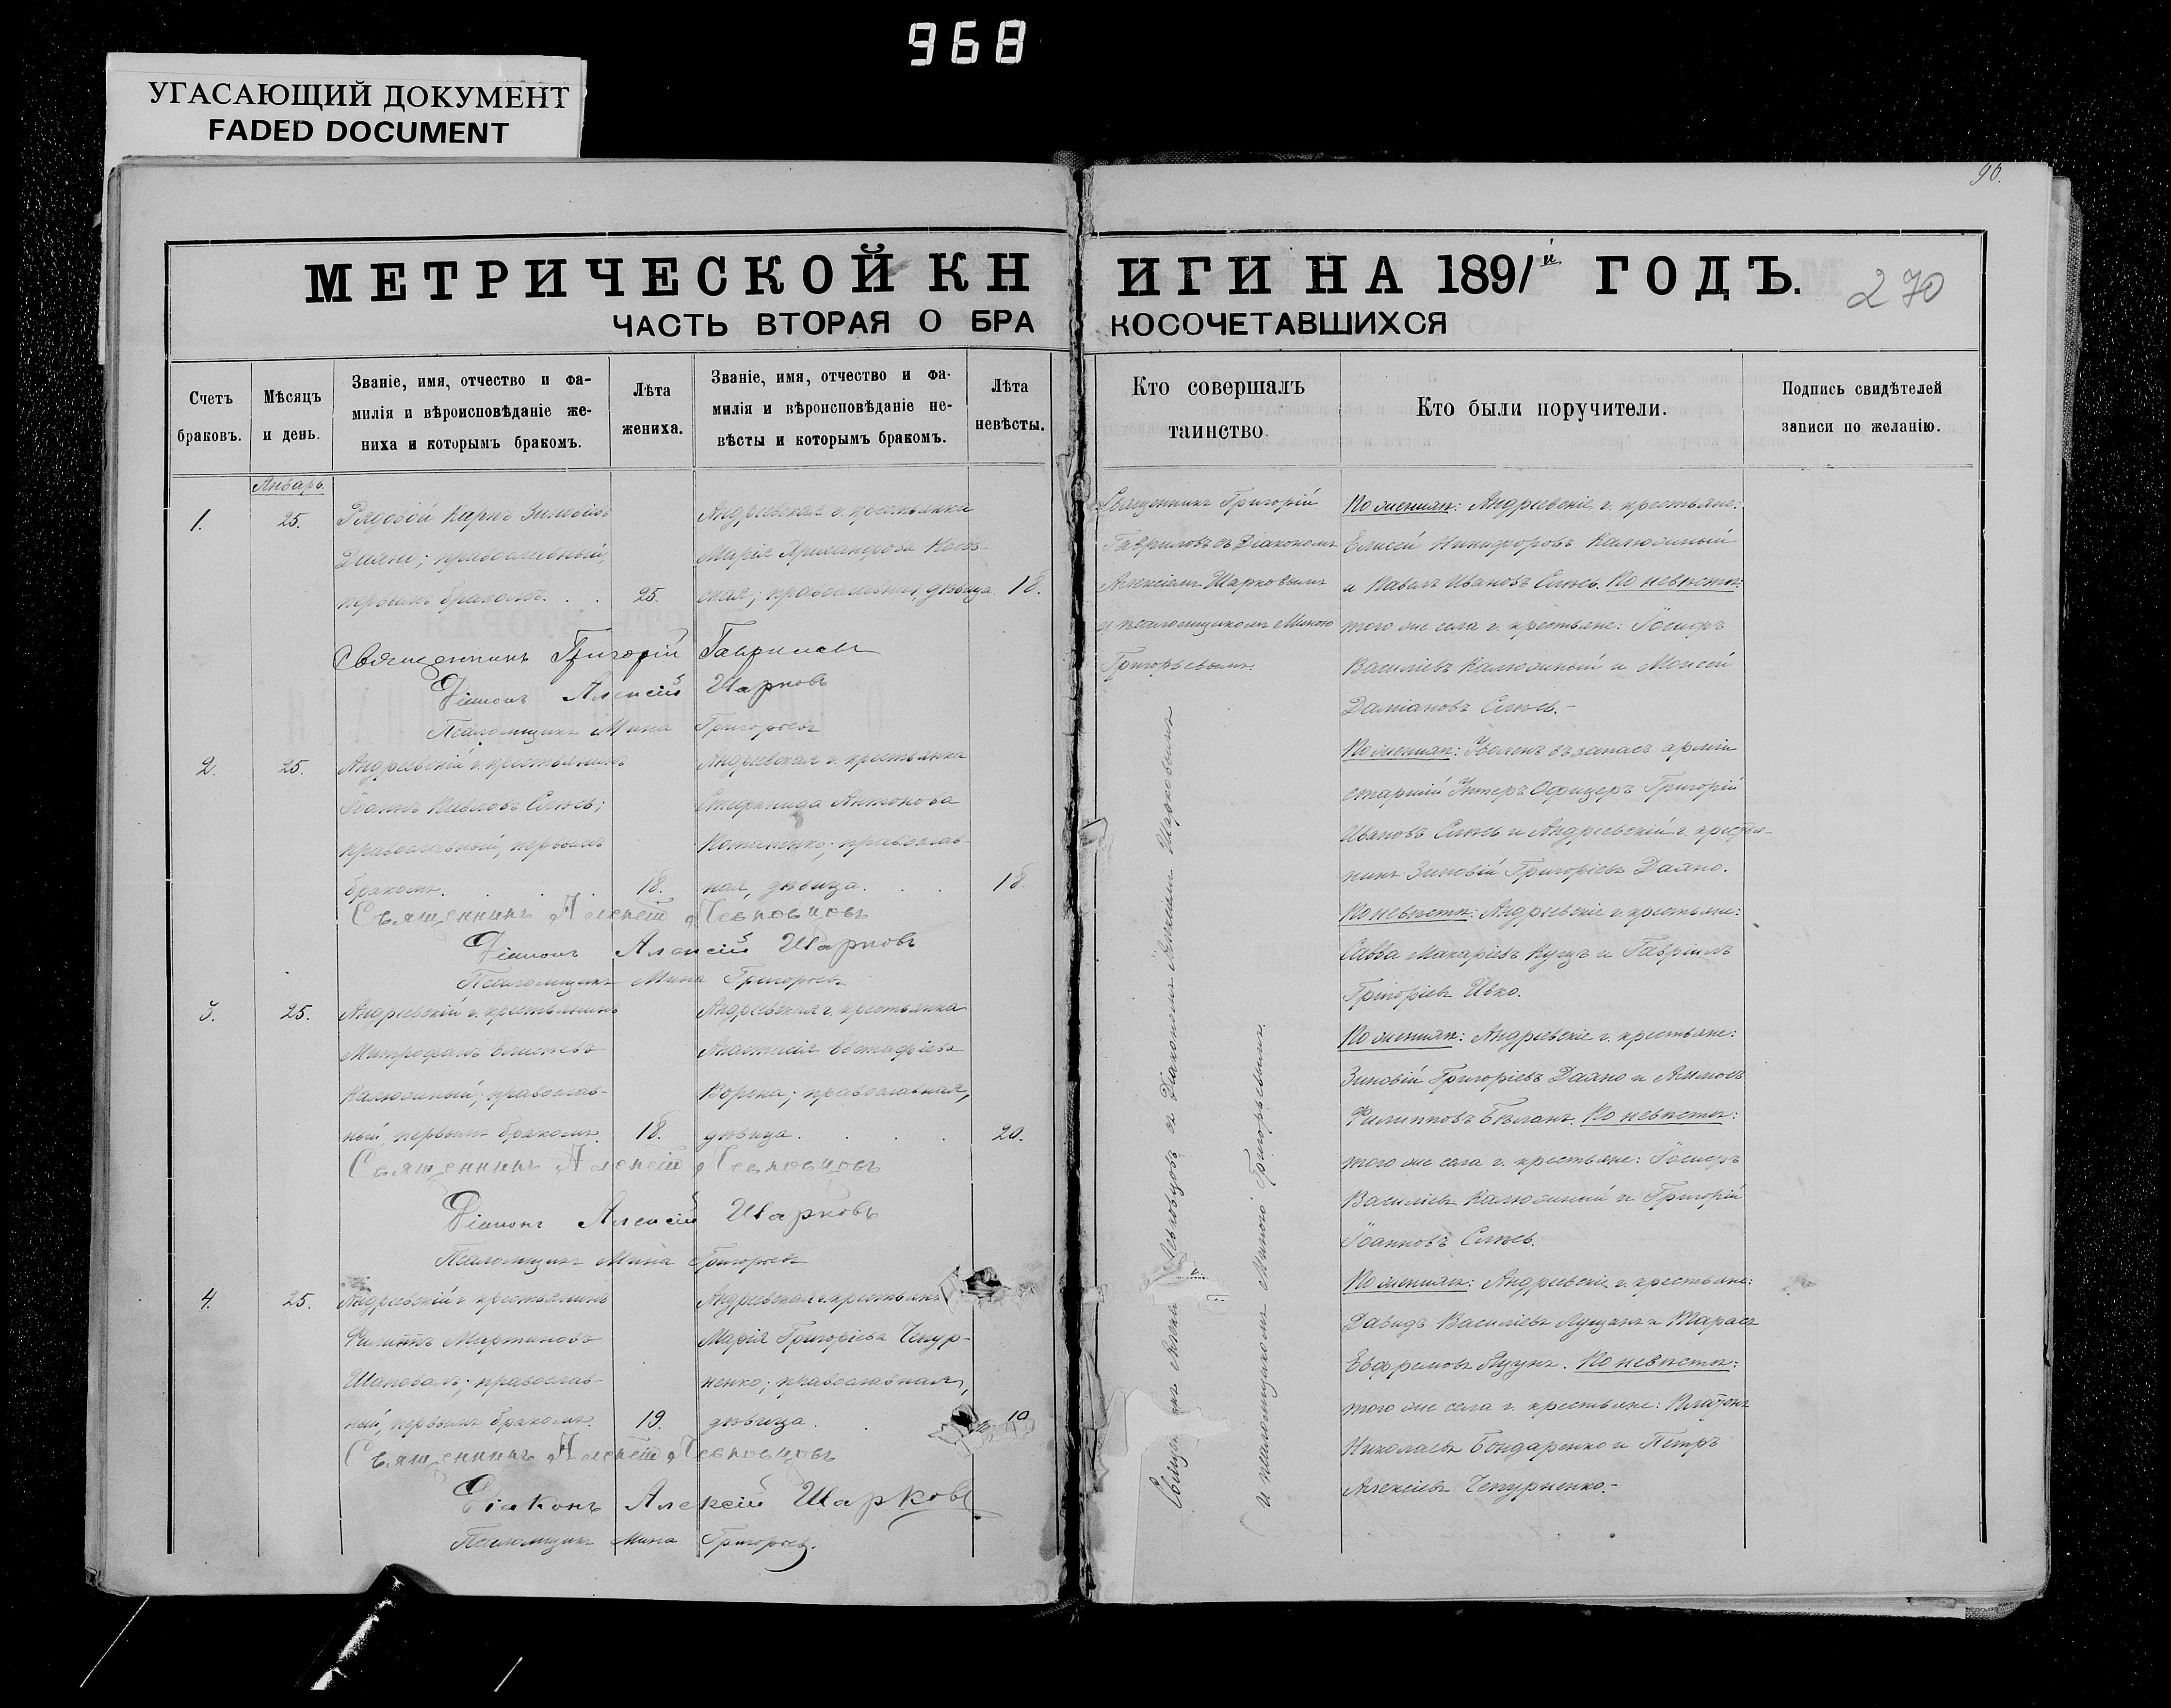 968
УГАСАЮЩИЙ ДОКУМЕНТ
FADED DOCUMENT
90.
МЕТРИЧЕСКОЙ КНИГИ НА 1891й ГОДЪ.
270
ЧАСТЬ ВТОРАЯ О БРАКОСОЧЕТАВШИХСЯ
Счетъ браковъ.
Мѣсяцъ и день.
Званіе, имя, отчество и фа-
милія и вѣроисповѣданіе же-
ниха и которымъ бракомъ.
Лѣта жениха.
Званіе, имя, отчество и фа-
милія и вѣроисповѣданіе не-
вѣсты и которымъ бракомъ.
Лѣта невѣсты.
Кто совершалъ
таинство.
Кто были поручители.
Подпись свидѣтелей
записи по желанію.
Январь.
1.
25.
Рядовой
православный,
первымъ бракомъ. . .
25.
Андреевская г. крестьянка
Марія
православная, дѣвица.
18.
Священникъ Григорій Гавриловъ
Діаконъ Алексій Шарковъ
Псаломщикъ Мина Григорьевъ
Священникъ Григорій
Гавриловъ съ Діакономъ
Алексіемъ Шарковымъ
и псаломщикомъ Миною
Григорьевымъ.
По женихѣ: Андреевскіе г. крестьяне:
Елисей Никифоровъ Калюжный
и Павелъ Ивановъ По невѣстѣ:
того же села г. крестьяне: Іосифъ
Василіевъ Калюжный и Моисей
Даміановъ
2.
25.
Андреевскій г. крестьянинъ
Іоаннъ Павловъ
православный, первымъ
бракомъ. . . .
18.
Андреевская г. крестьянка
Стефанида Антонова
православ-
ная, дѣвица. . .
18.
Священникъ Алексій Левковцовъ
Діаконъ Алексій Шарковъ
Псаломщикъ Мина Григорьевъ
По женихѣ: Уволенъ въ запасъ арміи
старшій Унтеръ Офицеръ Григорій
Ивановъ и Андреевскій г. крестья-
нинъ Зиновій Григоріевъ Даяно.
По невѣстѣ: Андреевскіе г. крестьяне:
Савва Макаріевъ Куцъ и Гавріилъ
Григоріевъ Ивко.
3.
25.
Андреевскій г. крестьянинъ
Митрофанъ Елисеевъ
Калюжный; православ-
ный, первымъ бракомъ.
18.
Андреевская г. крестьянка
Анастасія Евстафіева
Ворона; православная,
дѣвица. . . .
20.
Священникъ Алексій Левковцовъ
Діаконъ Алексій Шарковъ
Псаломщикъ Мина Григорьевъ
По женихѣ: Андреевскіе г. крестьяне:
Зиновій Григоріевъ Даяно и
Филипповъ Бѣланъ. По невѣстѣ:
того же села г. крестьяне: Іосифъ
Василіевъ Калюжный и Григорій
Іоанновъ
4.
25.
Андреевскій г. крестьянинъ
Филиппъ Мартиновъ
Шаповалъ; православ-
ный, первымъ бракомъ.
19.
Андреевская г. крестьянка
Марія Григоріева Чепур-
ненко; православная,
дѣвица.
Священникъ Алексій Левковцовъ
Діаконъ Алексій Шарковъ
Псаломщикъ Мина Григорьевъ.
Левковцовъ съ Діакономъ Алексіемъ Шарковымъ
и псаломщикомъ Миною Григорьевымъ.
По женихѣ: Андреевскіе г. крестьяне:
Давидъ Василіевъ и Тарасъ
Евфремовъ По невѣстѣ:
того же села г. крестьяне: Платонъ
Николаевъ Бондаренко и Петръ
Алексіевъ Чепурненко.-